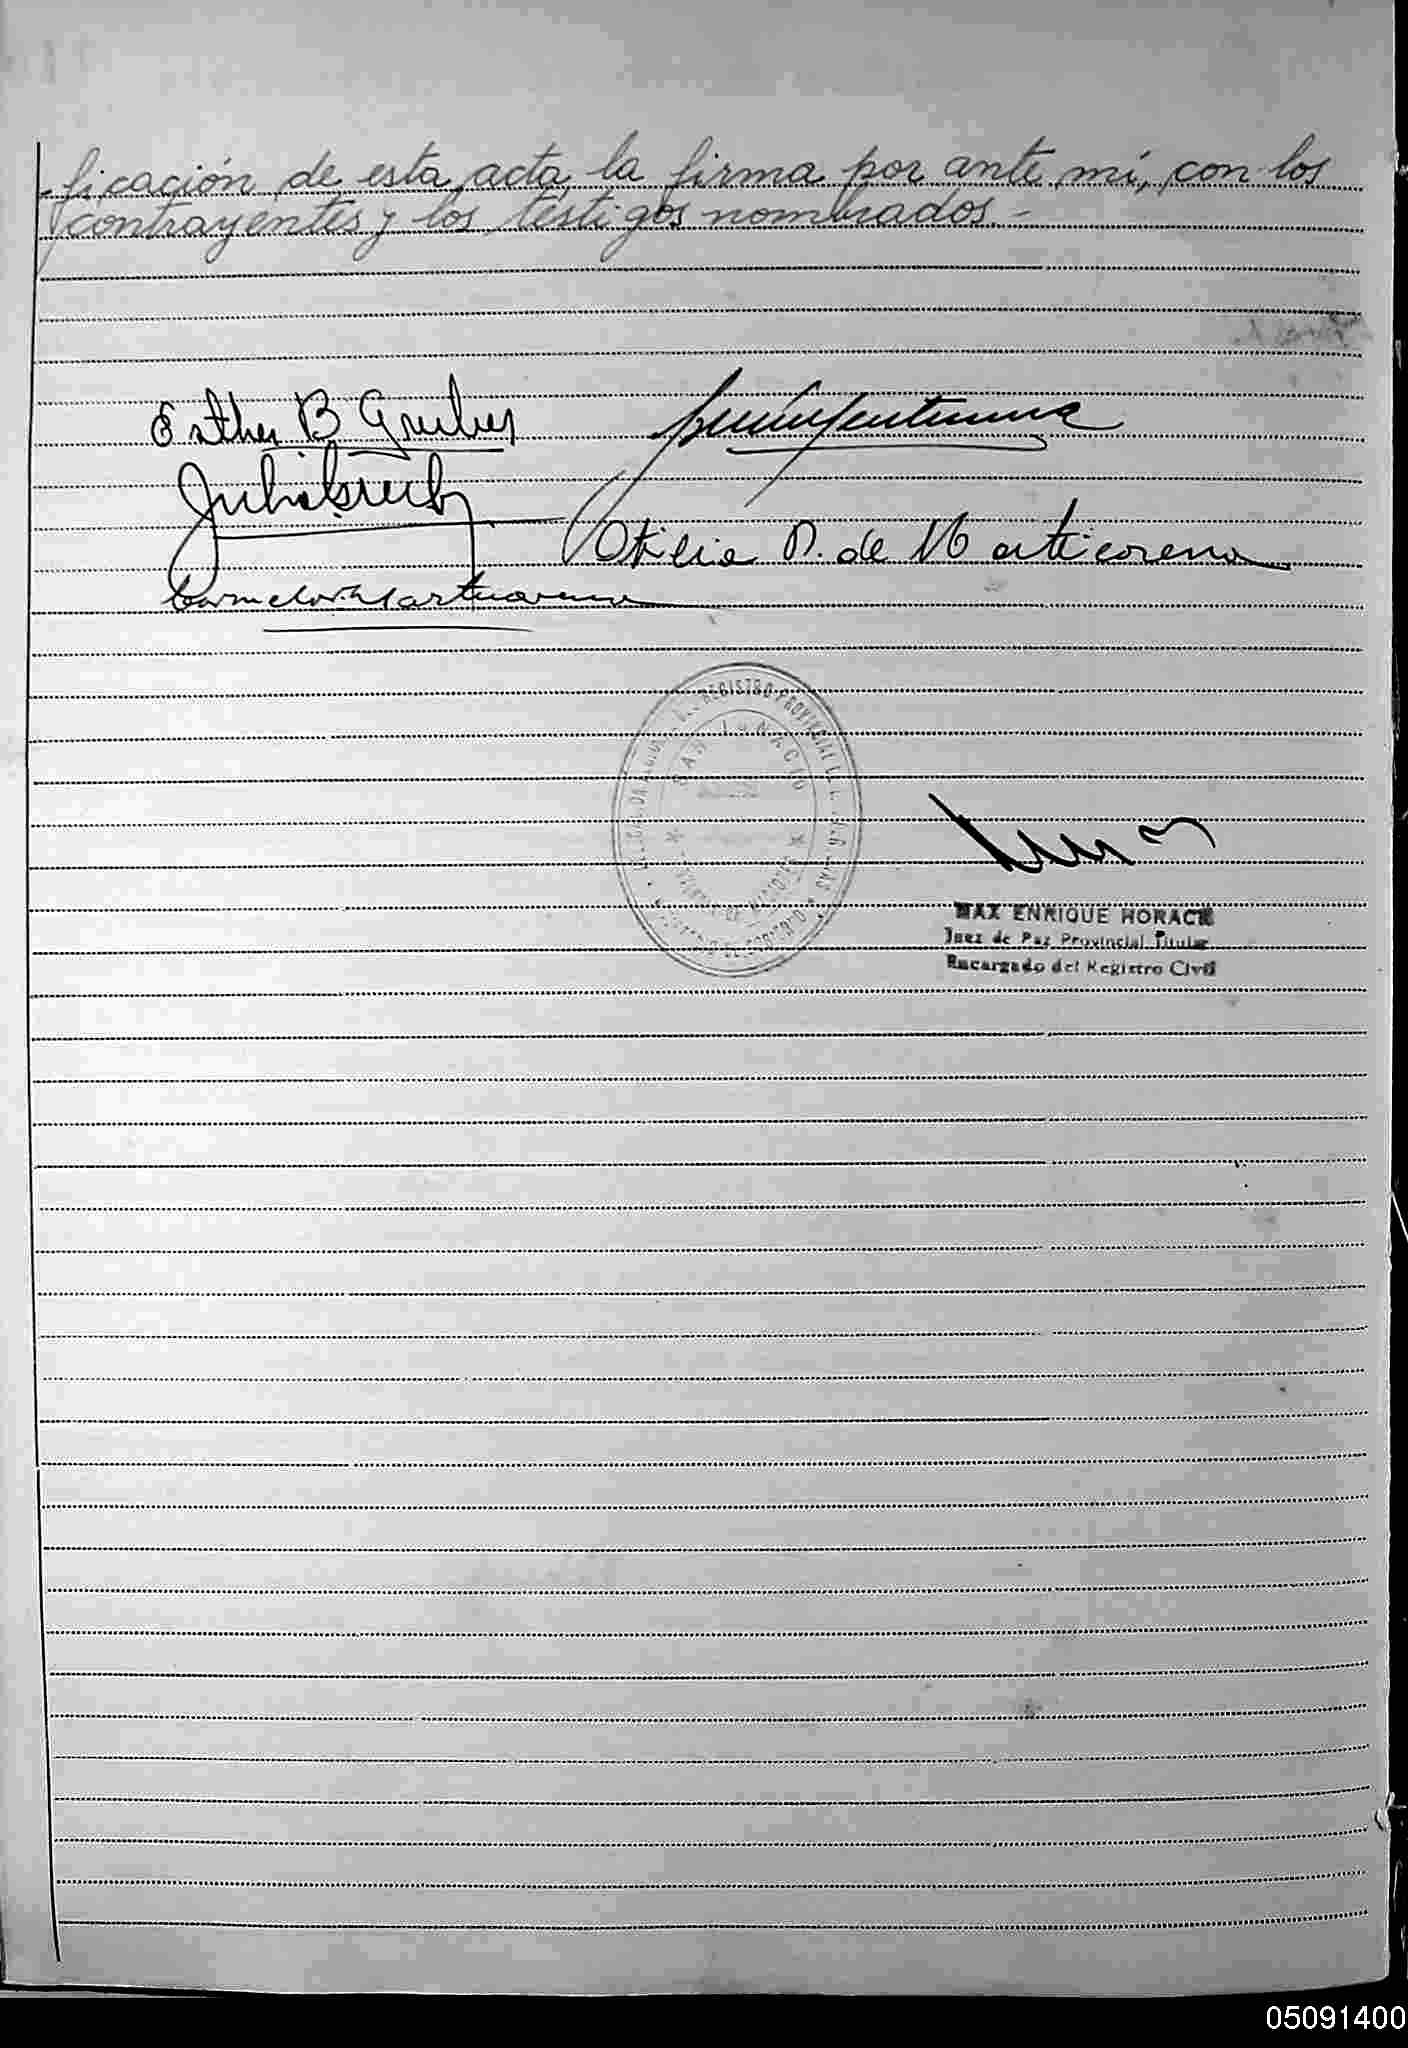 ficación de esta acta, la firma por ante mí, con los
contrayentes y los testigos nombrados.-
Esther B Gruber
Otilia P. de Marticorena
Carmelo Marticorena
REGISTRO PROVINCIAL DE LAS
SAN IGNACIO
MISIONES
MAX ENRIQUE HORACK
Juez de Paz Provincial Titular
Encargado del Registro Civil
05091400